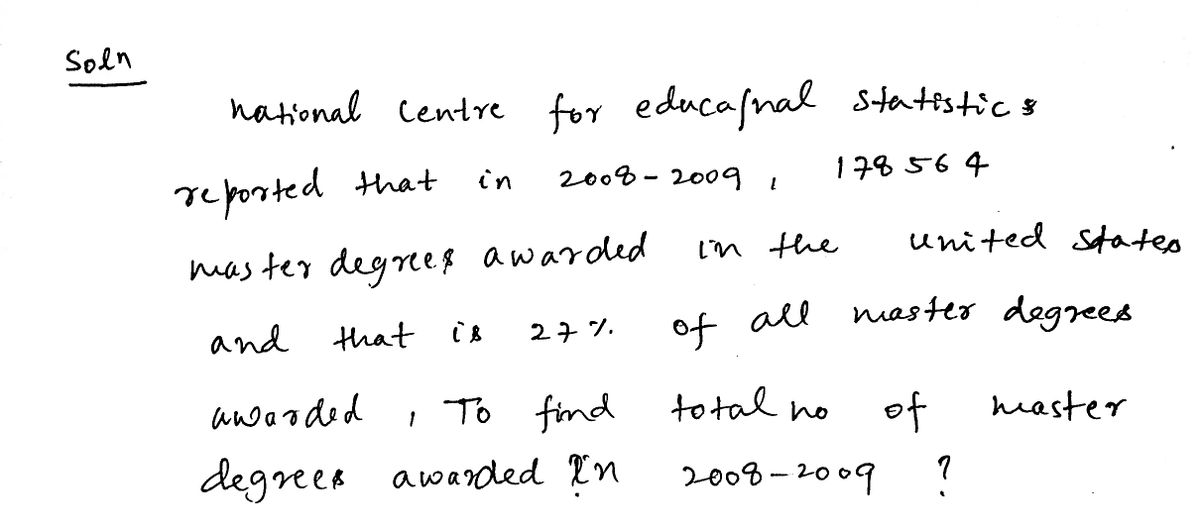 Soln
national Centre for educasnal statistics
reported that in 2008-2009, 178564
master degrees awarded in the united states
and that is 27% of all master degrees
awarded, To find total no of master
degrees awarded In 2008-2009 ?